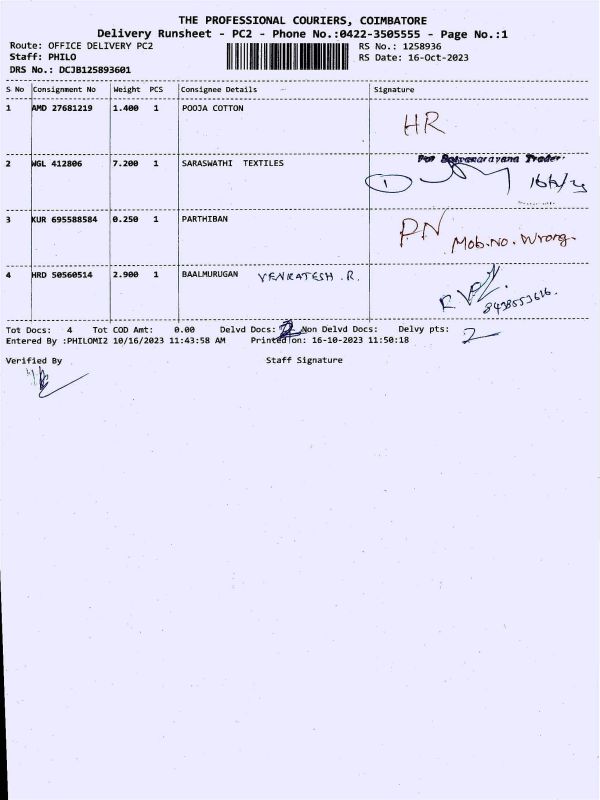 THE PROFESSIONAL COURIERS, COIMBATORE
Delivery Runsheet - PC2 - Phone No.:0422-3505555 - Page No.:1
Route: OFFICE DELIVERY PC2
Staff: PHILO
DRS No.: DCJB125893601
RS No.: 1258936
RS Date: 16-Oct-2023
S No Consignment No Weight PCS Consignee Details Signature
1 AMD 27681219 1.400 1 POOJA COTTON HR
For Satyanarayana Traders
2 WGL 412806 7.200 1 SARASWATHI TEXTILES 1
3 KUR 695588584 0.250 1 PARTHIBAN PN Mob.No. Wrong.
4 HRD 50560514 2.900 1 BAALMURUGAN VENKATESH .R.
Tot Docs: 4 Tot COD Amt: 0.00 Delvd Docs: 2 Non Delvd Docs: Delvy pts: 2
Entered By :PHILOMI2 10/16/2023 11:43:58 AM Printed on: 16-10-2023 11:50:18
Verified By Staff Signature